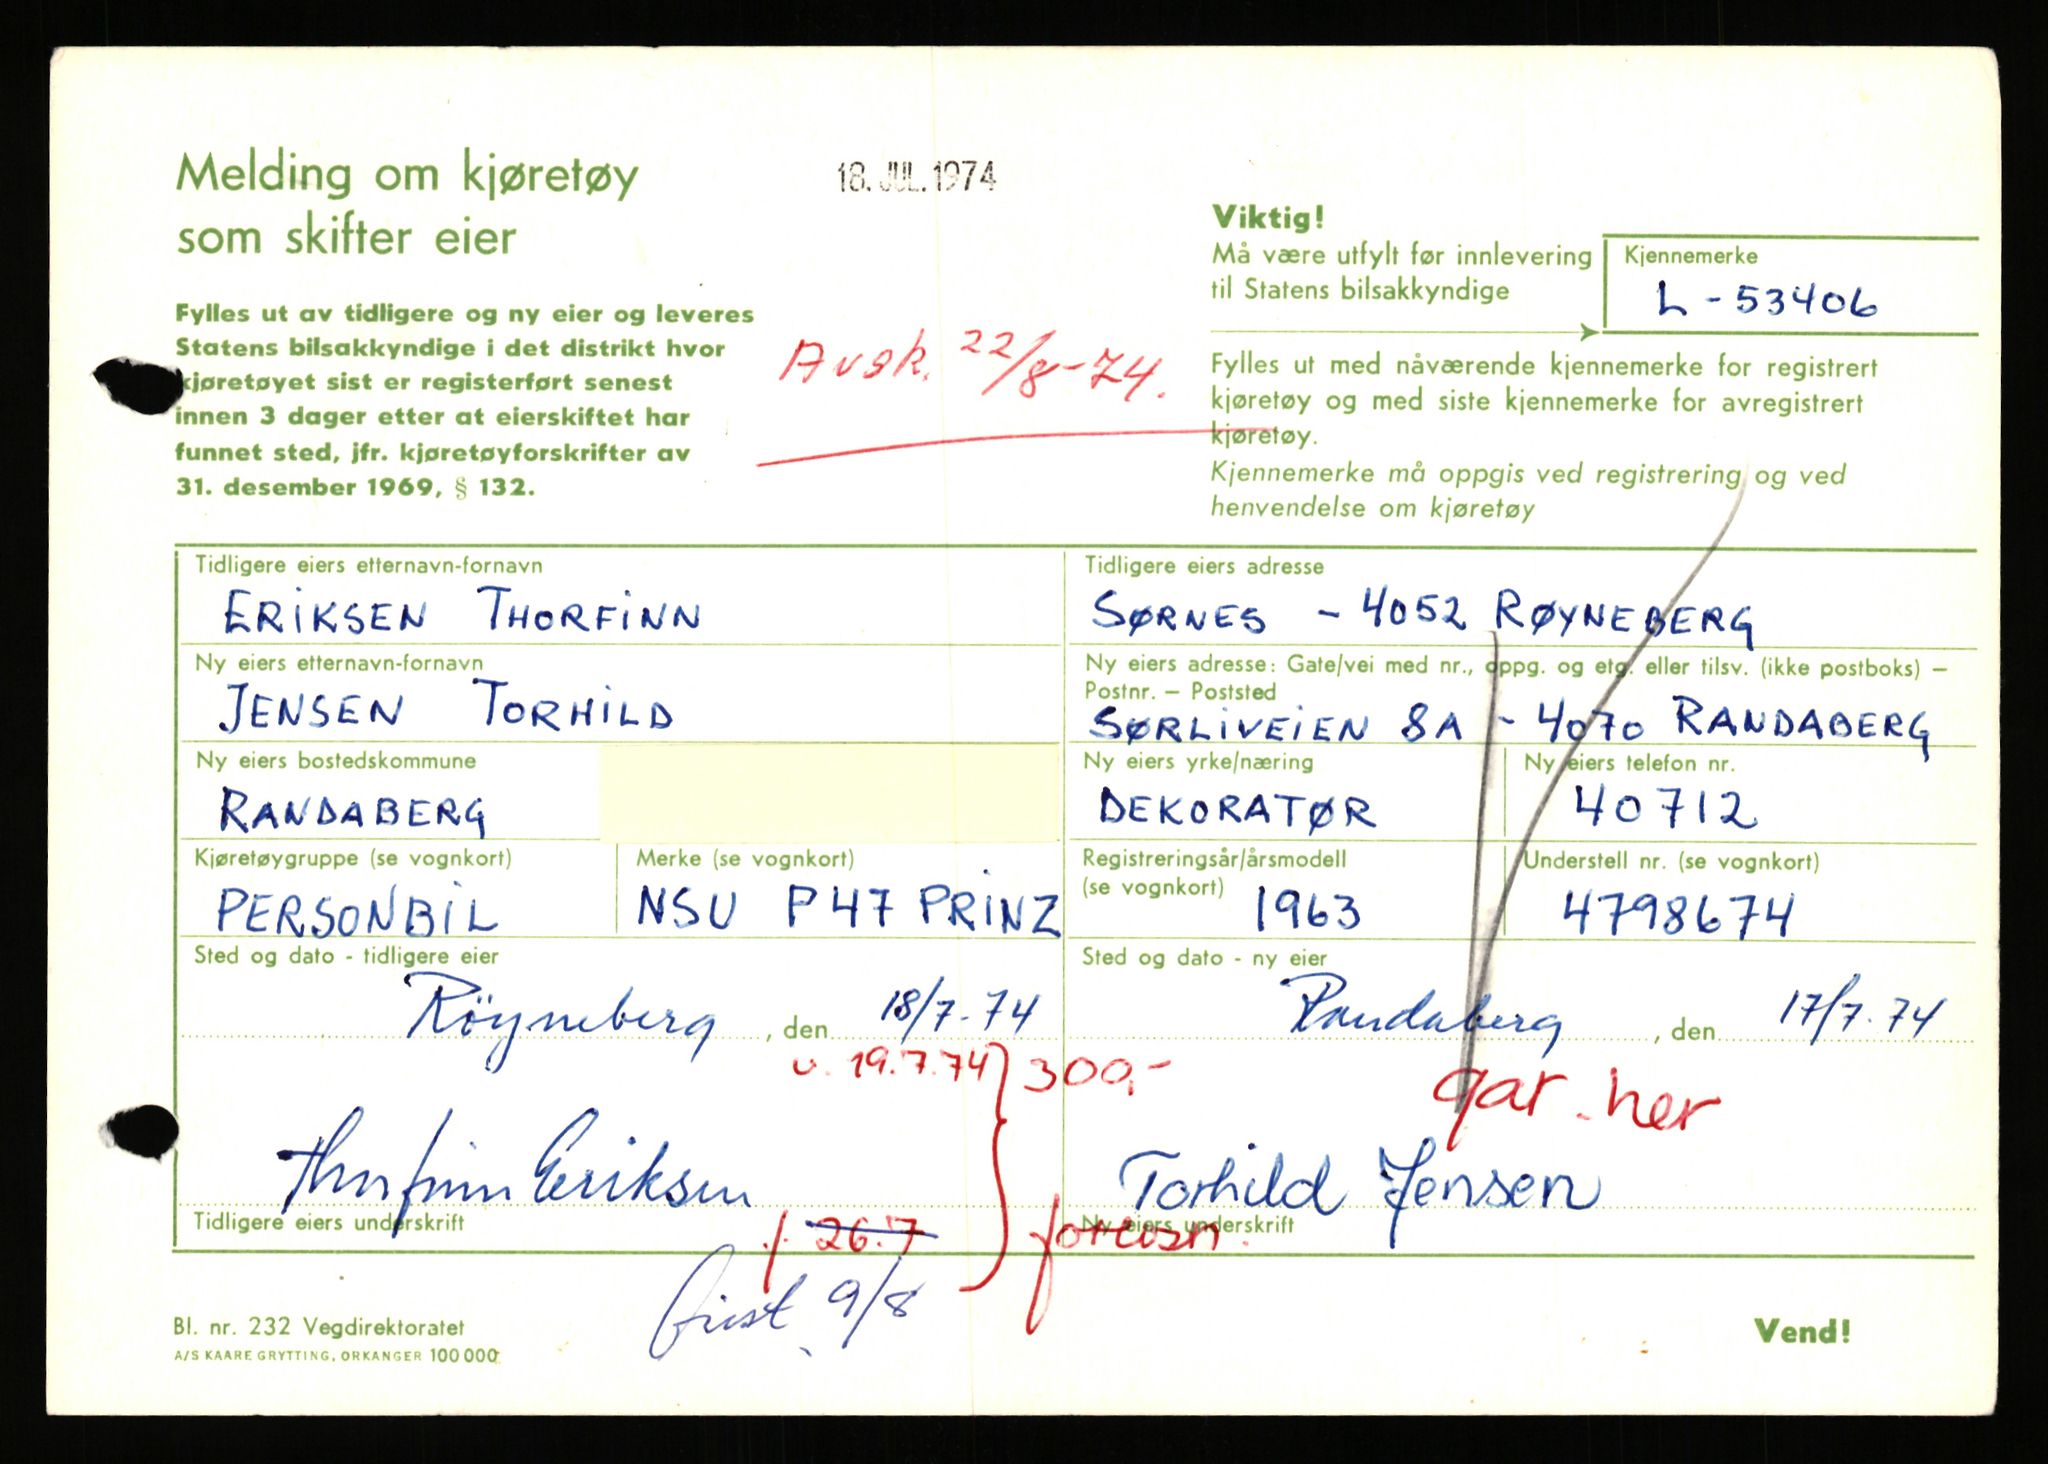 Melding om kjøretøy
som skifter eier
18. JUL. 1974
Fylles ut av tidligere og ny eier og leveres
Statens bilsakkyndige i det distrikt hvor
kjøretøyet sist er registerført senest
innen 3 dager etter at eierskiftet har
funnet sted, jfr. kjøretøyforskrifter av
31. desember 1969, § 132.
Avsk. 22/8-74.
Viktig!
Må være utfylt før innlevering
til Statens bilsakkyndige
Kjennemerke
L - 53406
Fylles ut med nåværende kjennemerke for registrert
kjøretøy og med siste kjennemerke for avregistrert
kjøretøy.
Kjennemerke må oppgis ved registrering og ved
henvendelse om kjøretøy
Tidligere eiers etternavn-fornavn
ERIKSEN THORFINN
Tidligere eiers adresse
SØRNES - 4052 RØYNEBERG
Ny eiers etternavn-fornavn
JENSEN TORHILD
Ny eiers adresse: Gate/vei med nr., oppg. og etg. eller tilsv. (ikke postboks) –
Postnr. – Poststed
SØRLIVEIEN 8A - 4070 RANDABERG
Ny eiers bostedskommune
RANDABERG
Ny eiers yrke/næring
DEKORATØR
Ny eiers telefon nr.
40712
Kjøretøygruppe (se vognkort)
PERSONBIL
Merke (se vognkort)
NSU P47 PRINZ
Registreringsår/årsmodell
(se vognkort)
1963
Understell nr. (se vognkort)
4798674
Sted og dato - tidligere eier
Röyneberg, den 18/7-74
Sted og dato - ny eier
Randaberg, den 17/7.74
u. 19.7.74 300,-
gar. her
Thorfinn Eriksen
Torhild Jensen
Tidligere eiers underskrift
Ny eiers underskrift
26.7
frist 9/8
Bl. nr. 232 Vegdirektoratet
A/S KAARE GRYTTING, ORKANGER 100 000
Vend!